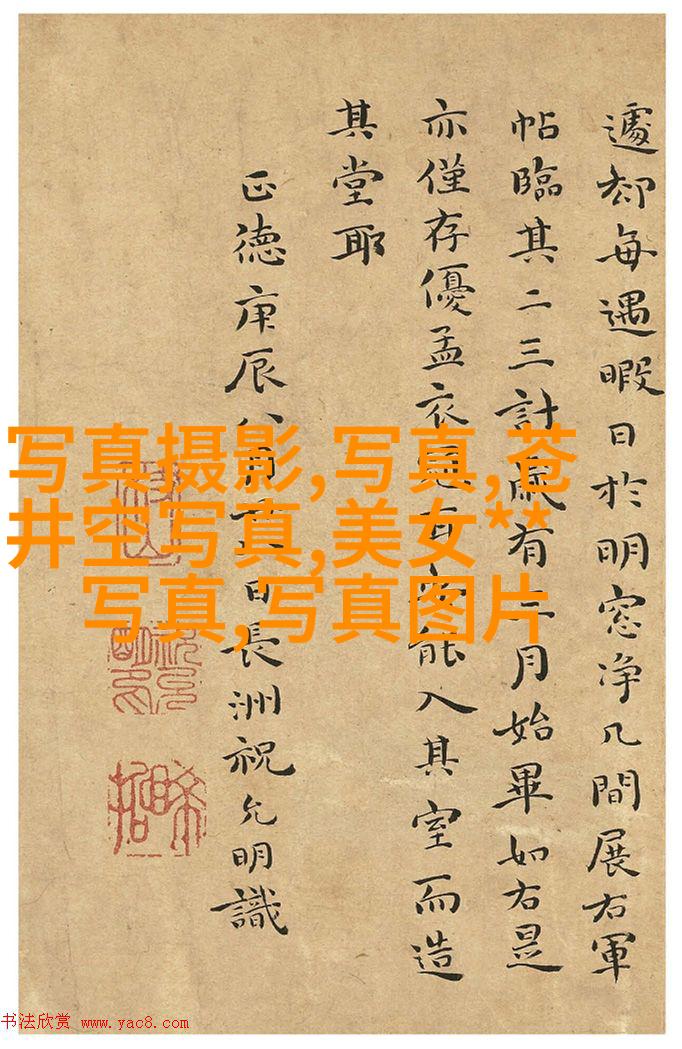 遽却每遇暇日於明窓净几間展右軍
帖臨其二三計歲有三月始畢如右是
亦僅存優孟衣安能入其室而造
其堂耶
正德庚辰八月日長洲祝允明識
写真摄影,写真,苍
井空写真,美女**
写真,写真图片
书法欣赏 www.yac8.com